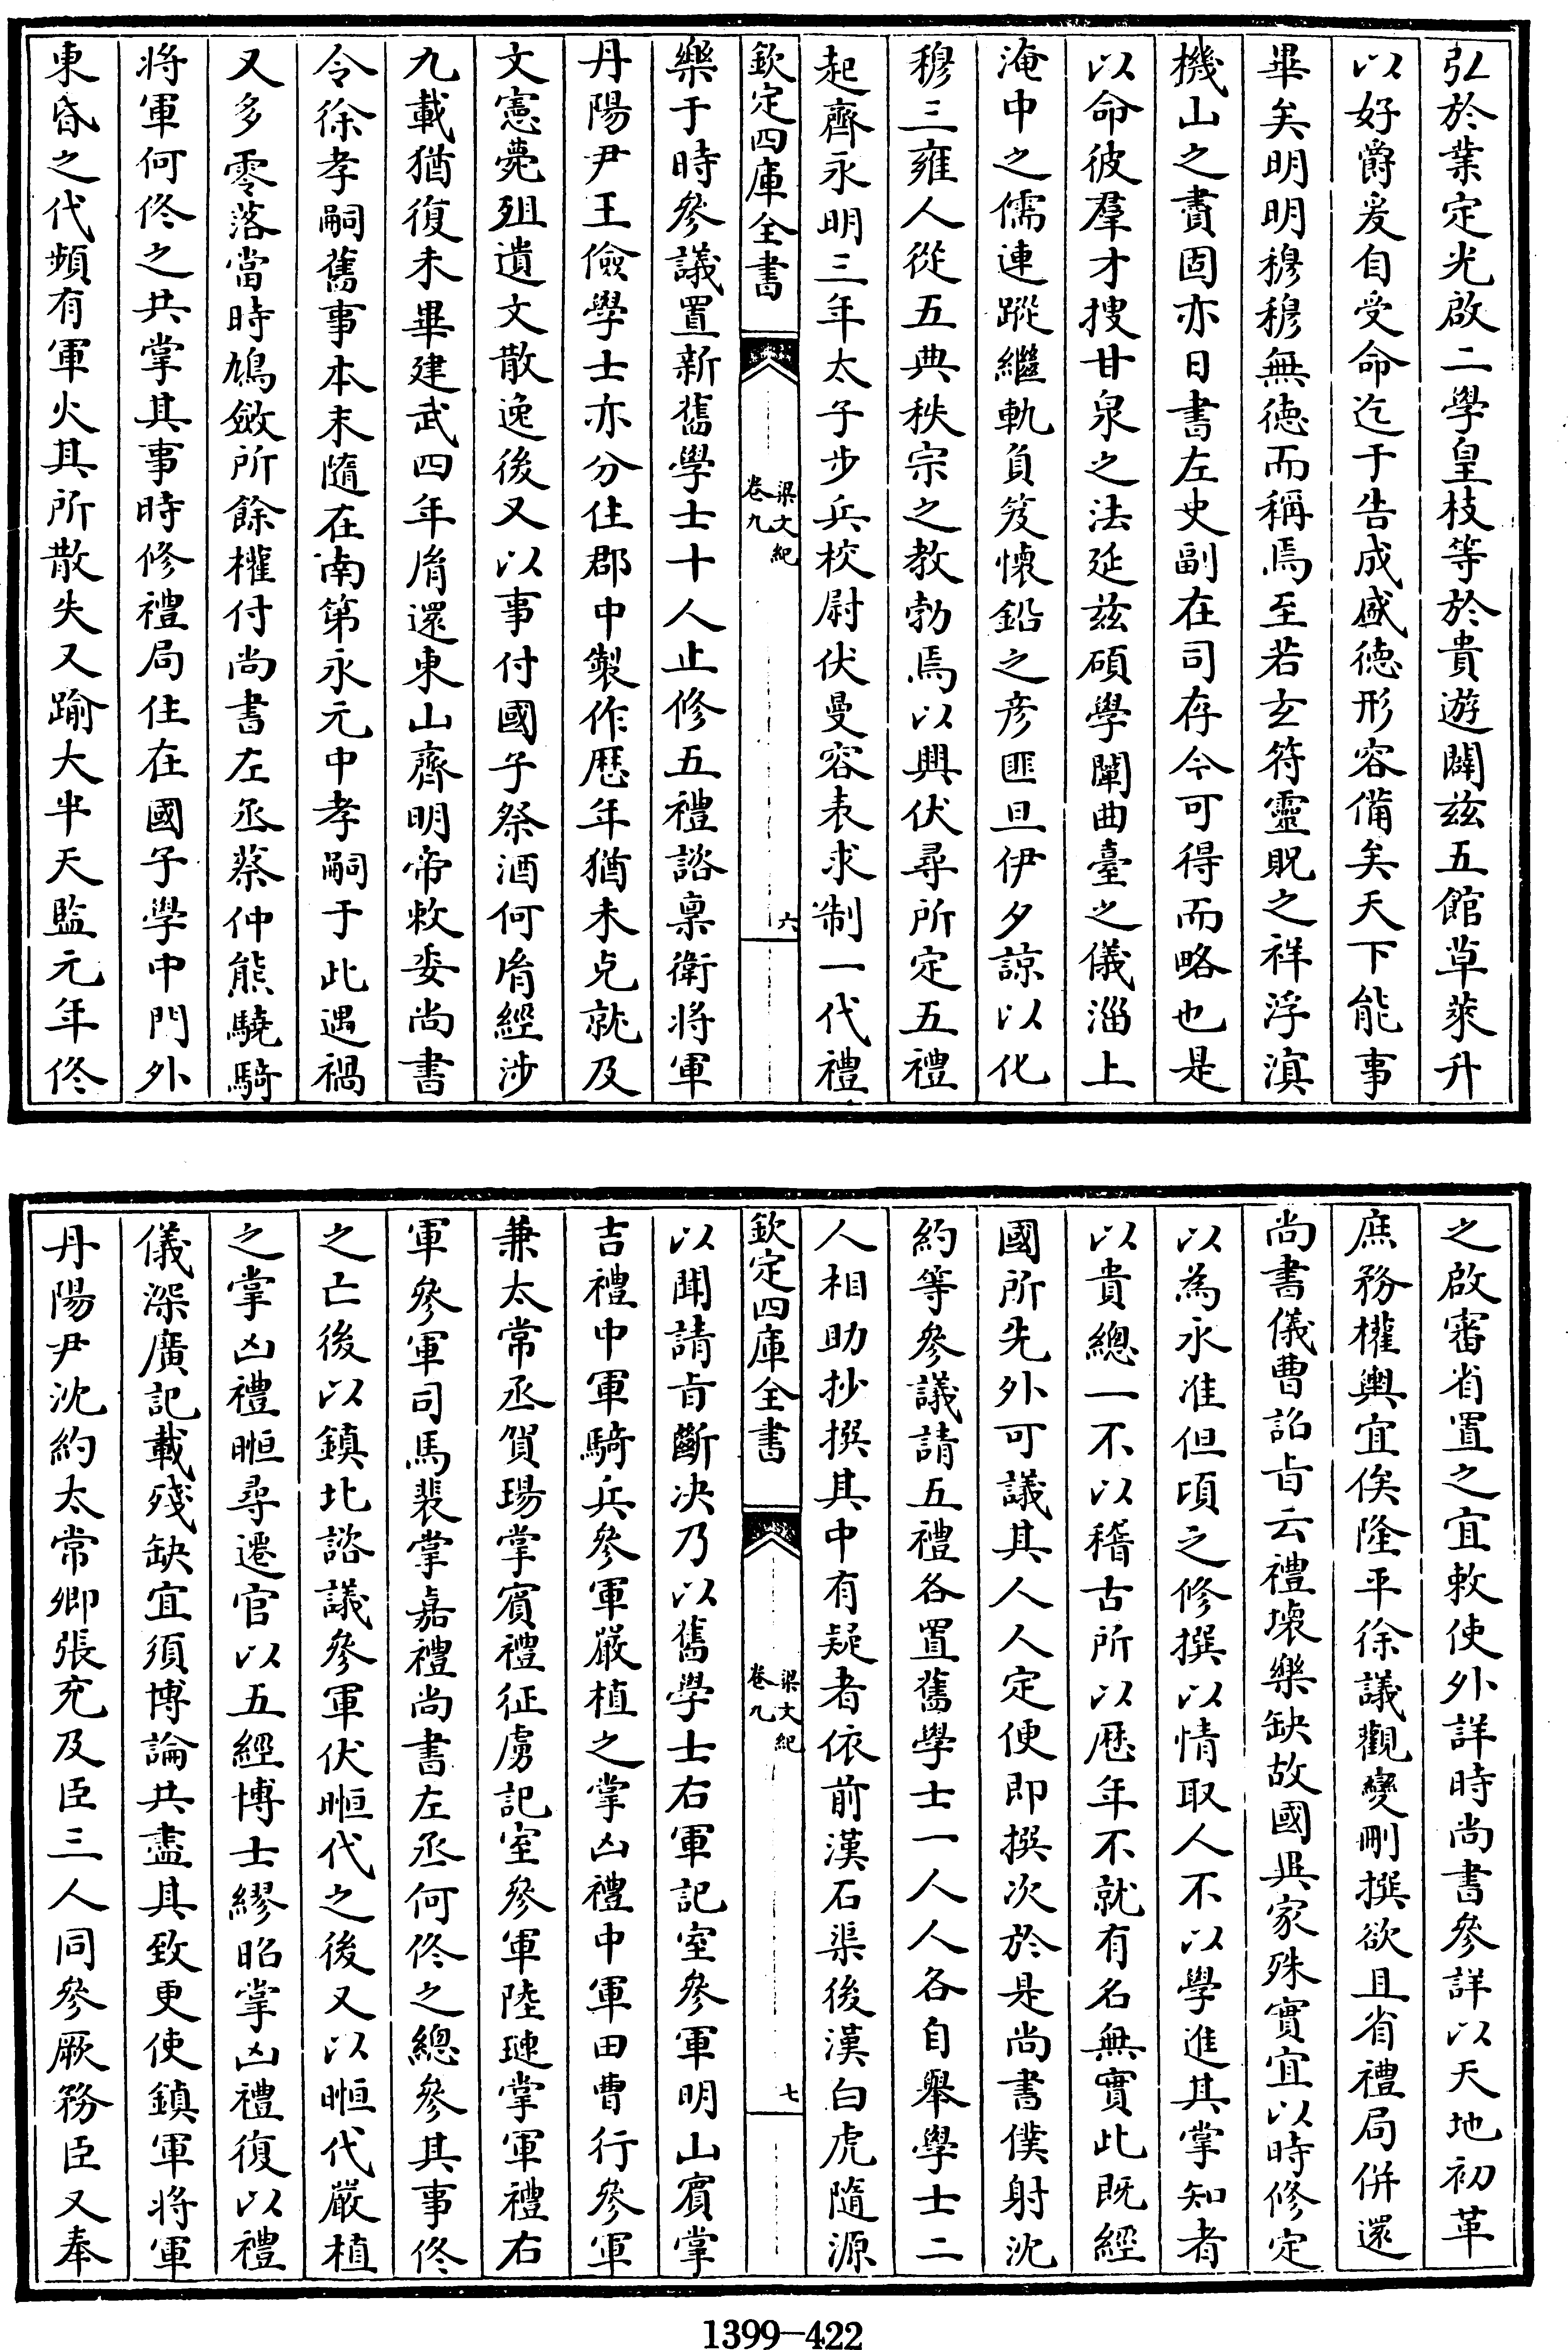 弘於業定光啟二學皇枝等於貴遊闢兹五館草萊升
以好爵爰自受命迄于告成盛徳形容備矣天下能事
畢矣明明穆穆無徳而稱焉至若玄符靈貺之祥浮溟
機山之賮固亦日書左史副在司存今可得而略也是
以命彼羣才捜甘泉之法延兹碩學闡曲臺之儀淄上
淹中之儒連蹤繼軌負笈懐鉛之彦匪旦伊夕諒以化
穆三雍人從五典秩宗之教勃焉以興伏尋所定五禮
起齊永明三年太子步兵校尉伏曼容表求制一代禮
欽定四庫全書
梁文紀
卷九
六
樂于時參議置新舊學士十人止修五禮諮稟衛將軍
丹陽尹王儉學士亦分住郡中製作厯年猶未克就及
文憲薨殂遺文散逸後又以事付國子祭酒何胤經涉
九載猶復未畢建武四年胤還東山齊明帝敕委尚書
令徐孝嗣舊事本末隨在南第永元中孝嗣于此遇禍
又多零落當時鳩斂所餘權付尚書左丞蔡仲熊驍騎
將軍何佟之共掌其事時修禮局住在國子學中門外
東昏之代頻有軍火其所散失又踰大半天監元年佟
之啟審省置之宜敕使外詳時尚書參詳以天地初革
庶務權輿宜俟隆平徐議觀變刪撰欲且省禮局併還
尚書儀曹詔㫖云禮壊樂缺故國異家殊實宜以時修定
以為永准但頃之修撰以情取人不以學進其掌知者
以貴總一不以稽古所以厯年不就有名無實此既經
國所先外可議其人人定便即撰次於是尚書僕射沈
約等參議請五禮各置舊學士一人人各自舉學士二
人相助抄撰其中有疑者依前漢石渠後漢白虎隨源
欽定四庫全書
梁文紀
卷九
七
以聞請㫖斷决乃以舊學士右軍記室參軍明山賓掌
吉禮中軍騎兵參軍嚴植之掌凶禮中軍田曹行參軍
兼太常丞賀瑒掌賓禮征虜記室參軍陸璉掌軍禮右
軍參軍司馬裴掌嘉禮尚書左丞何佟之總參其事佟
之亡後以鎮北諮議參軍伏暅代之後又以暅代嚴植
之掌凶禮暅尋遷官以五經博士繆昭掌凶禮復以禮
儀深廣記載殘缺宜須博論共盡其致更使鎮軍將軍
丹陽尹沈約太常卿張充及臣三人同參厥務臣又奉
1399—422